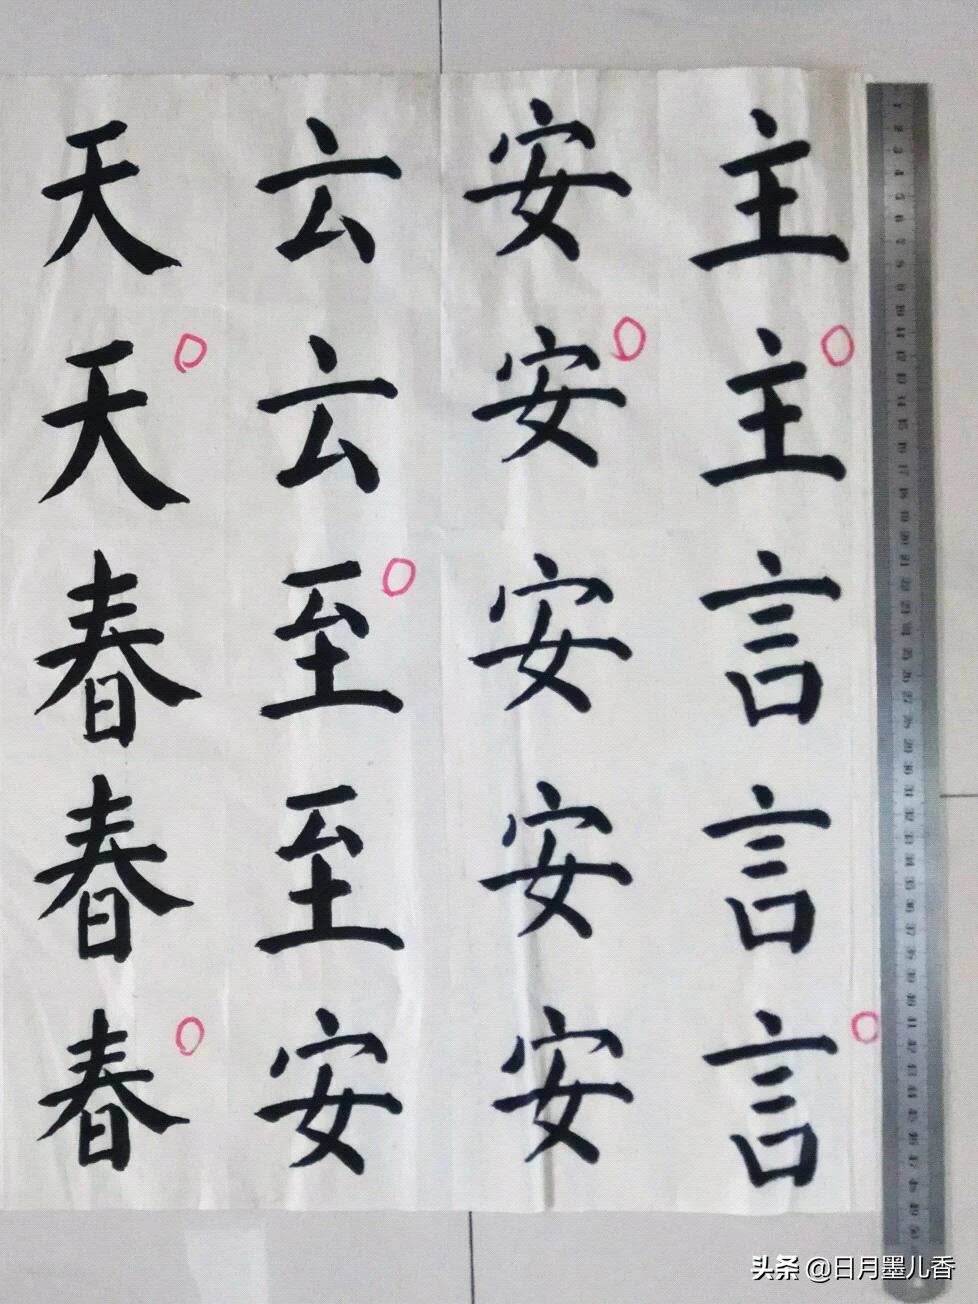 主主言言言
安安安安安
云云至至安
天天春春春
头条 @日月墨儿香